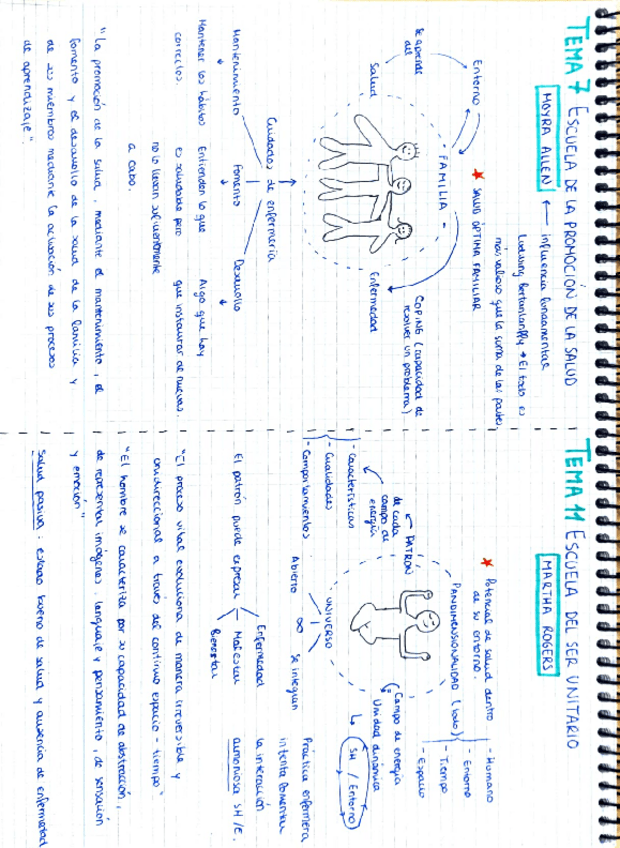 TEMA 7 ESCUELA DE LA PROMOCIÓN DE LA SALUD
MOYRA ALLEN ← influencia fundamental
Ludwing Bertanlanffy → El todo es
más valioso que la suma de las partes.
★ SALUD ÓPTIMA FAMILIAR
Entorno
Se aprende
del
- FAMILIA -
COPING (capacidad de
resolver un problema)
Salud
Enfermedad
Cuidados de enfermería
Mantenimiento
Fomento
Desarrollo
Mantener los hábitos
correctos.
Entienden lo que
es saludable pero
no lo llevan suficientemente
a cabo.
Algo que hay
que instaurar de nuevas.
"La promoción de la salud, mediante el mantenimiento, el
fomento y el desarrollo de la salud de la familia y
de sus miembros mediante la activación de sus procesos
de aprendizaje".
TEMA 11 ESCUELA DEL SER UNITARIO
MARTHA ROGERS
★ Potencial de salud dentro
de su entorno.
PANDIMENSIONALIDAD (todo)
- Humano
- Entorno
- Tiempo
- Espacio
PATRÓN
de cada
campo de
energía
- Características
- Cualidades
- Comportamientos
Campo de energía
Unidad dinámica
SH / Entorno
UNIVERSO
Abierto
∞
Se integran
El patrón puede expresar
Enfermedad
Malestar
Bienestar
Práctica enfermera
intenta fomentar
la interacción
armoniosa SH/E.
"El proceso vital evoluciona de manera irreversible y
unidireccional a través del continuo espacio-tiempo"
"El hombre se caracteriza por su capacidad de abstracción,
de representar imágenes, lenguaje y pensamiento, de sensación
y emoción"
Salud pasiva: estado bueno de salud y ausencia de enfermedad